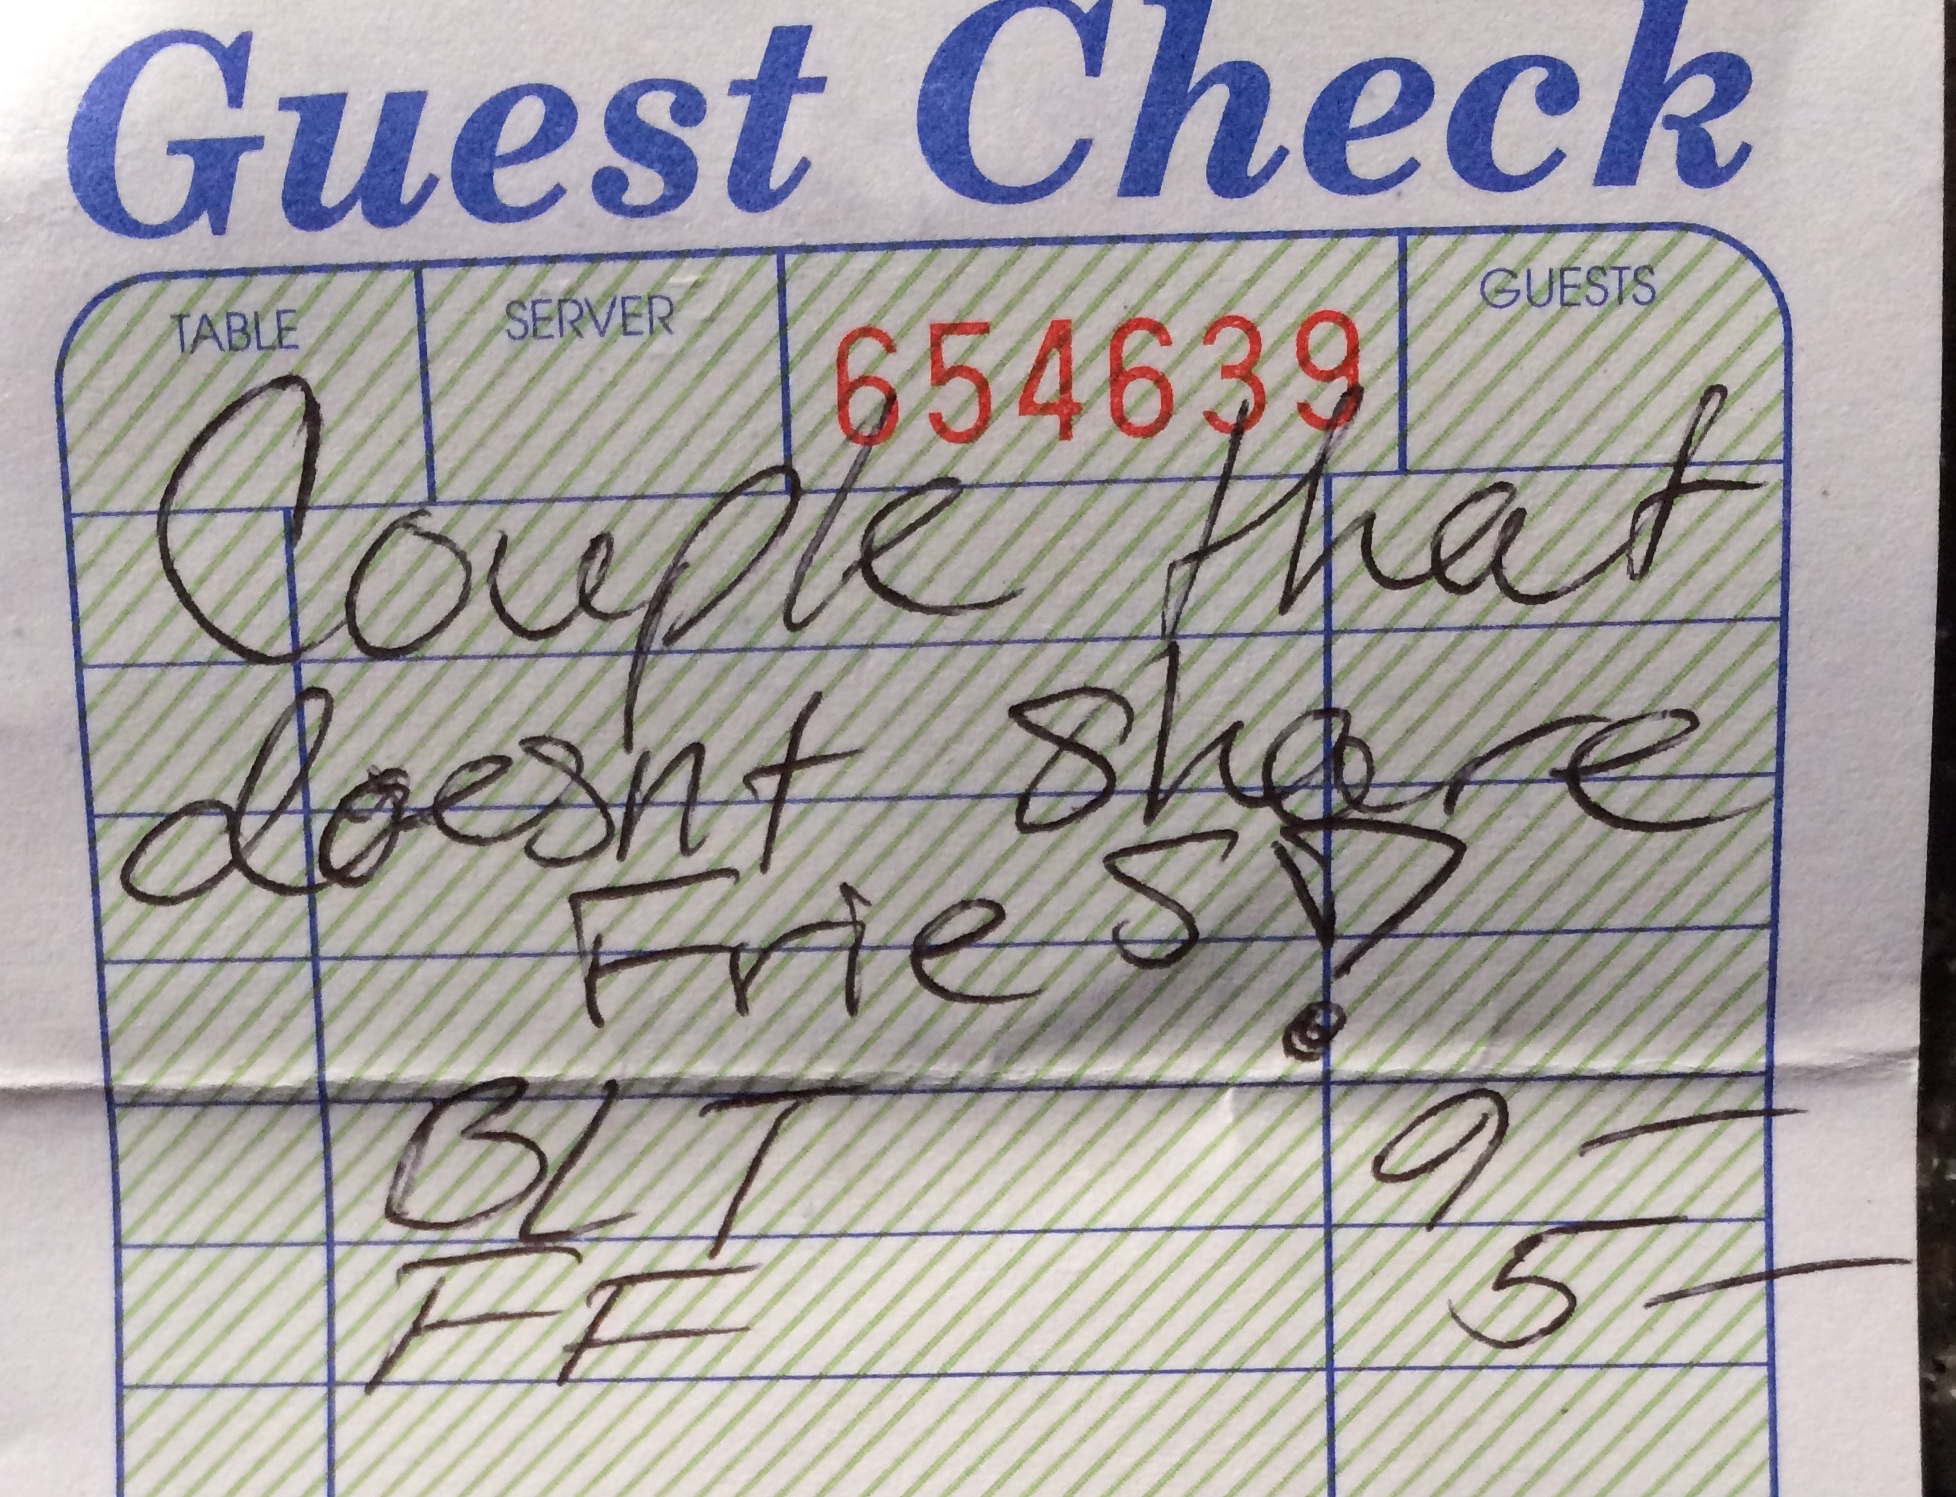 Guest Check
TABLE SERVER 654639 GUESTS
Couple that
doesnt share
Fries!
BLT 9 —
FF 5 —